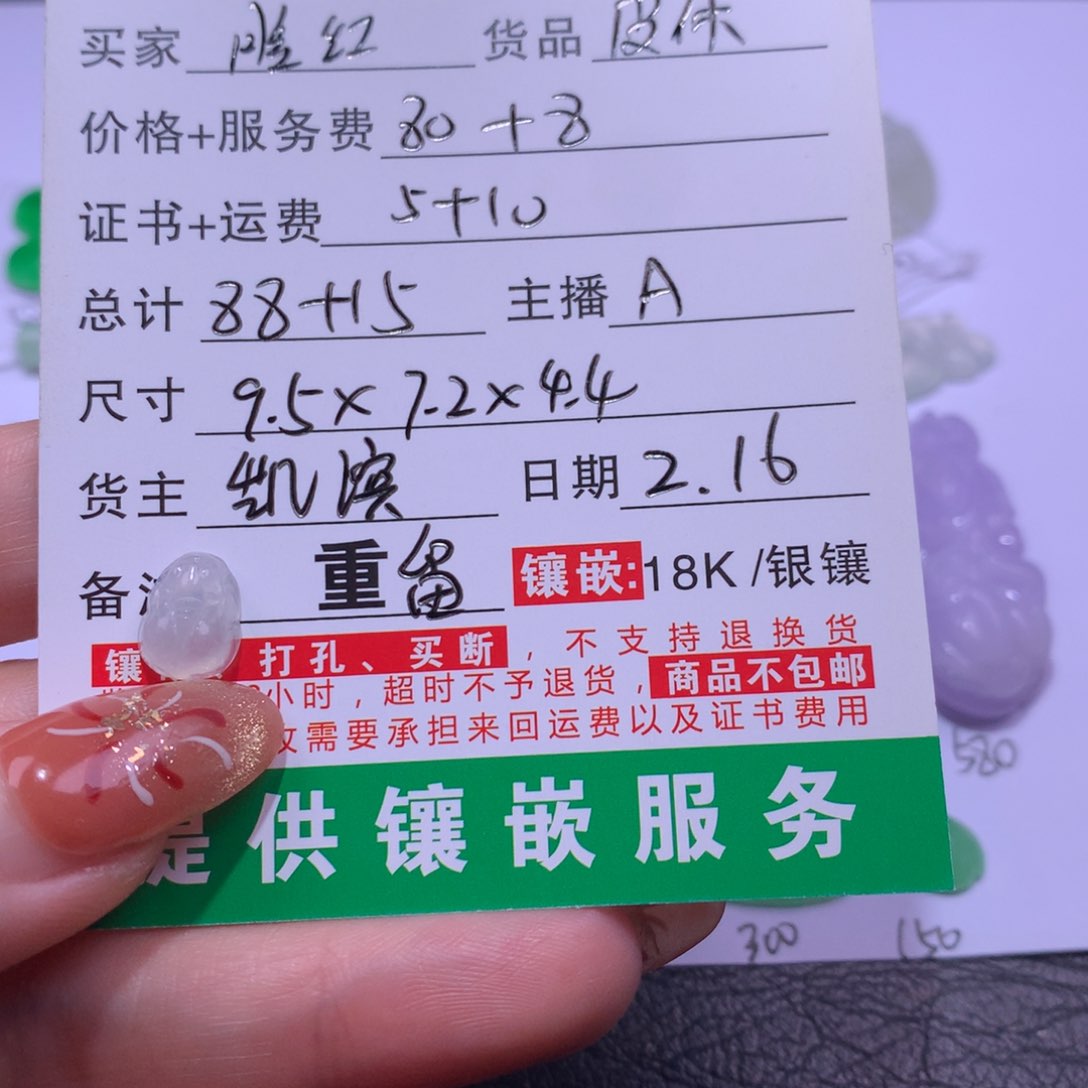 买家 货品
价格+服务费 80+8
证书+运费 5+10
总计 88+15 主播 A
尺寸 9.5×7.2×4.4
货主 凯滨 日期 2.16
备 重留 镶嵌:18K/银镶
镶 打孔、买断，不支持退换货
小时，超时不予退货，商品不包邮
需要承担来回运费以及证书费用
提供镶嵌服务
580
300 150